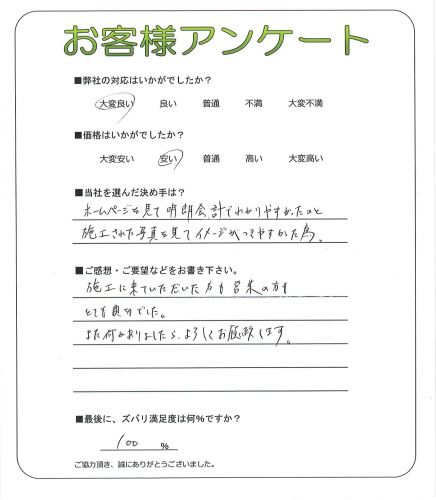 お客様アンケート
■弊社の対応はいかがでしたか？
大変良い 良い 普通 不満 大変不満
■価格はいかがでしたか？
大変安い 安い 普通 高い 大変高い
■当社を選んだ決め手は？
ホームページを見て明朗会計でわかりやすかったのと
施工された写真を見てイメージがつきやすかった為。
■ご感想・ご要望などをお書き下さい。
施工に来ていただいた方も営業の方も
とても親切でした。
また何かありましたら、よろしくお願い致します。
■最後に、ズバリ満足度は何%ですか？
100 %
ご協力頂き、誠にありがとうございました。